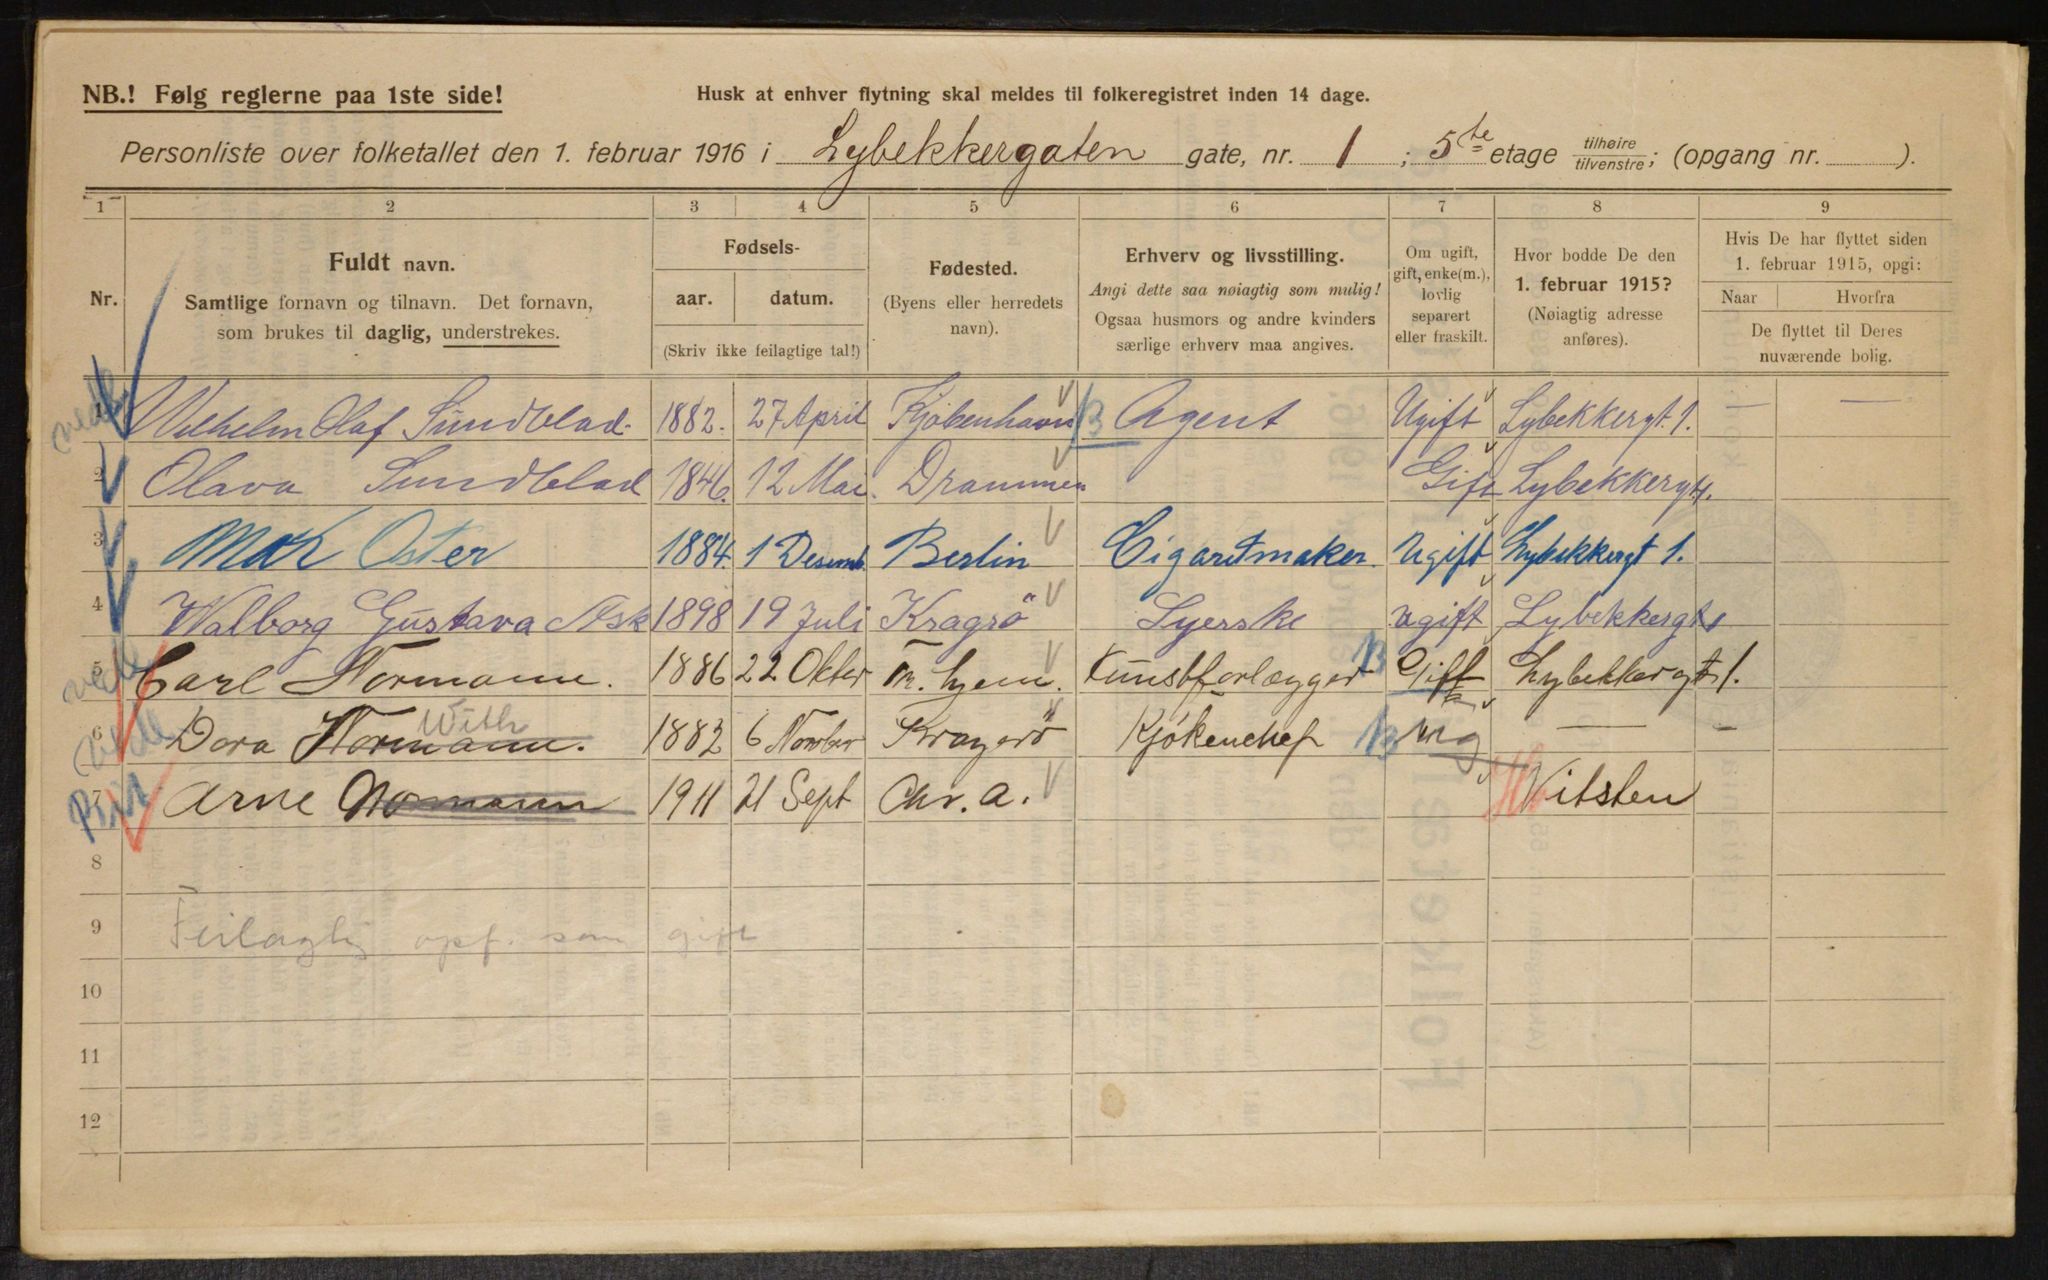 NB.! Følg reglerne paa 1ste side!
Husk at enhver flytning skal meldes til folkeregistret inden 14 dage.
Personliste over folketallet den 1. februar 1916 i Lybekkergaten gate, nr. 1 ; 5te etage tilhøire/tilvenstre; (opgang nr. ).
1 2 3 4 5 6 7 8 9
Nr.
Fuldt navn.
Samtlige fornavn og tilnavn. Det fornavn,
som brukes til daglig, understrekes.
Fødsels-
aar. datum.
(Skriv ikke feilagtige tal!)
Fødested.
(Byens eller herredets
navn).
Erhverv og livsstilling.
Angi dette saa nøiagtig som mulig!
Ogsaa husmors og andre kvinders
særlige erhverv maa angives.
Om ugift,
gift, enke(m.),
lovlig
separert
eller fraskilt.
Hvor bodde De den
1. februar 1915?
(Nøiagtig adresse
anføres).
Hvis De har flyttet siden
1. februar 1915, opgi:
Naar Hvorfra
De flyttet til Deres
nuværende bolig.
1 Wilhelm Olaf Sundblad. 1882. 27 April Kjöbenhavn B Agent Ugift Lybekkergt. 1. — —
2 Olava Sundblad 1846. 12 Mai. Drammen Gift Lybekkergt 1.
3 Max Oster 1884. 1 Desemb. Berlin Cigaretmaker. Ugift Lybekkergt 1.
4 Walborg Gustava Ask 1898 19 Juli Kragrö Syerske ugift Lybekkergt 1
5 Carl Normann. 1886 22 Okter Tr. hjem. Kunstforlægger B Gift Lybekkergt 1.
With
6 Dora Normann. 1882 6 Novber Kragerö Kjökenchef B ug — –
7 Arne Normann 1911 21 Sept Chr.a. Hvitsten
8
9 Feilagtig opf. som gift
10
11
12